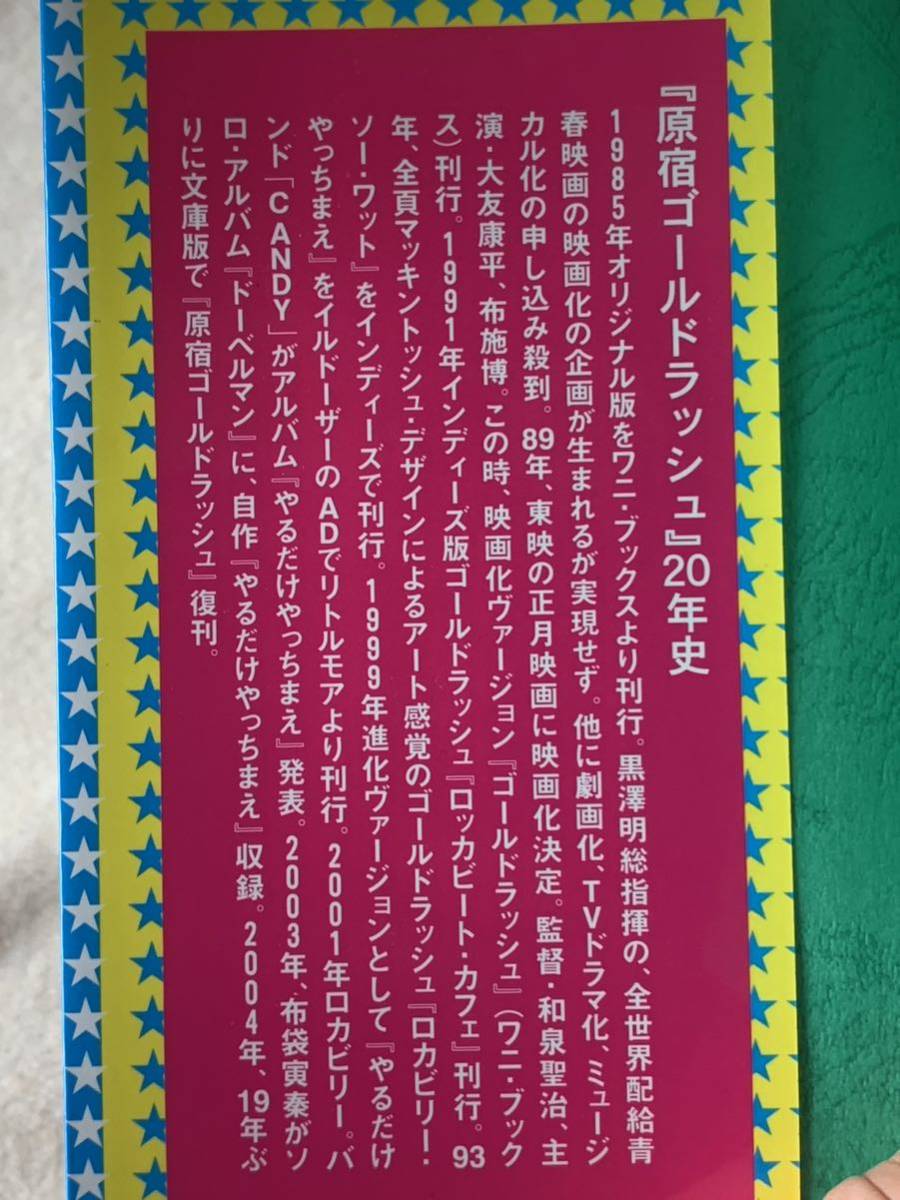 『原宿ゴールドラッシュ』20年史
1985年オリジナル版をワニ・ブックスより刊行。黒澤明総指揮の、全世界配給青
春映画の映画化の企画が生まれるが実現せず。他に劇画化、TVドラマ化、ミュージ
カル化の申し込み殺到。89年、東映の正月映画に映画化決定。監督・和泉聖治、主
演・大友康平、布施博。この時、映画化ヴァージョン『ゴールドラッシュ』(ワニ・ブック
ス)刊行。1991年インディーズ版ゴールドラッシュ『ロッカビート・カフェ』刊行。93
年、全頁マッキントッシュ・デザインによるアート感覚のゴールドラッシュ『ロカビリー・
ソー・ワット』をインディーズで刊行。1999年進化ヴァージョンとして『やるだけ
やっちまえ』をイルドーザーのADでリトルモアより刊行。2001年ロカビリー。バ
ンド「CANDY」がアルバム『やるだけやっちまえ』発表。2003年、布袋寅泰がソ
ロ・アルバム『ドーベルマン』に、自作『やるだけやっちまえ』収録。2004年、19年ぶ
りに文庫版で『原宿ゴールドラッシュ』復刊。